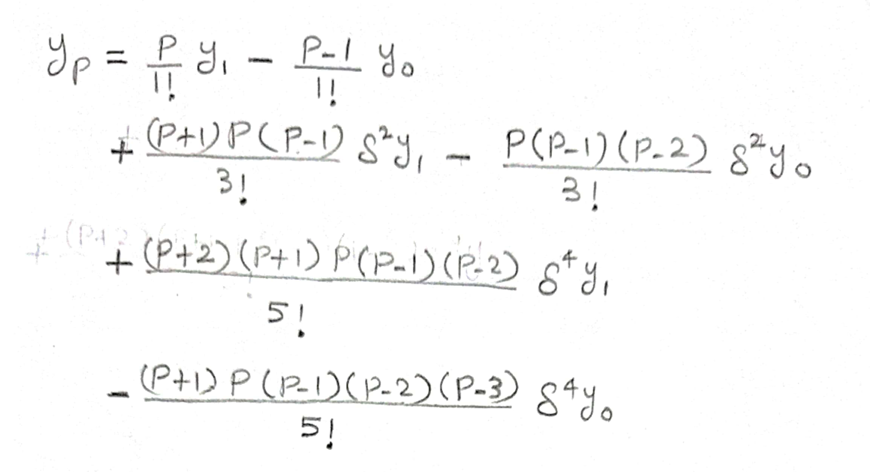 y_p = P/1! y₁ - P-1/1! y₀
+ (P+1)P(P-1)/3! δ²y₁ - P(P-1)(P-2)/3! δ²y₀
+ (P+2)(P+1)P(P-1)(P-2)/5! δ⁴y₁
- (P+1)P(P-1)(P-2)(P-3)/5! δ⁴y₀